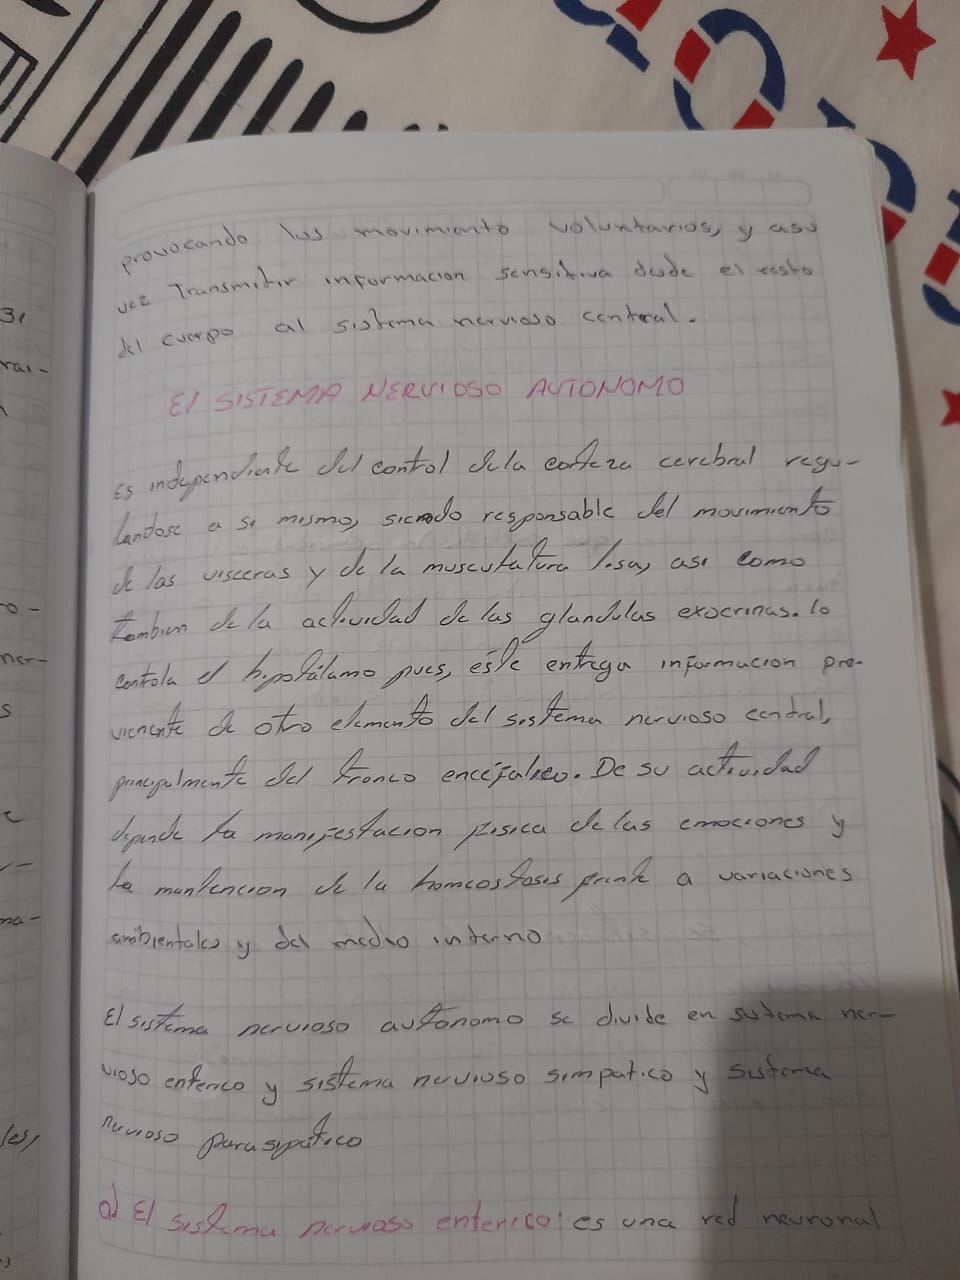 provocando los movimiento voluntarios, y asu
vez Transmitir informacion sensitiva desde el resto
del cuerpo al sistema nervioso central.
El SISTEMA NERVIOSO AUTONOMO
Es independiente del control de la corteza cerebral regu-
landose a si mismo, siendo responsable del movimiento
de las visceras y de la musculatura lisa, asi como
tambien de la actividad de las glandulas exocrinas. lo
controla el hipotálamo pues, este entrega informacion pro-
viniente de otro elemento del sistema nervioso central,
principalmente del tronco encefalico. De su actividad
depende la manifestacion fisica de las emociones y
la mantencion de la homeostasis frente a variaciones
ambientales y del medio interno
El sistema nervioso autonomo se divide en sistema ner-
vioso enterico y sistema nervioso simpatico y sistema
nervioso parasipatico
a) El sistema nervioso enterico: es una red neuronal
31
rai-
ro-
ner-
s
ma-
les,